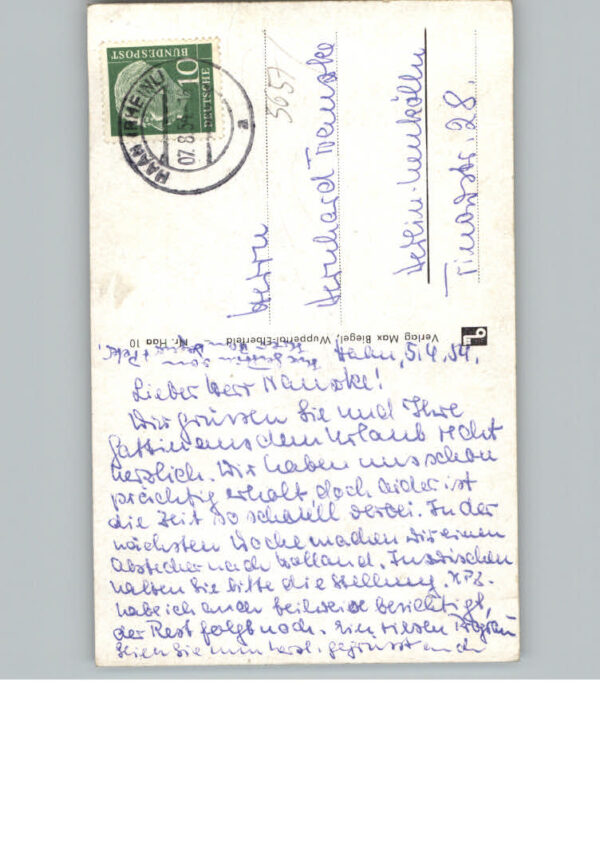 DEUTSCHE
BUNDESPOST
10
HAAN (RHEINL)
07.8.
a
5657
Herrn
Bernhard
Berlin-Neukölln
28.
Verlag Max Biegel, Wuppertal-Elberfeld
Nr. Haa 10
Hahn, 5.4.54.
Lieber Herr
Wir grüssen Sie und Ihre
Gattin aus dem Urlaub recht
herzlich. Wir haben uns schon
prächtig erholt, doch leider ist
die Zeit so schnell vorbei. In der
nächsten Woche machen wir einen
Abstecher nach Holland. Inzwischen
halten Sie bitte die Stellung.
habe ich auch teilweise besichtigt,
der Rest folgt noch. Ein riesen
Seien Sie nun herzl. gegrüsst auch